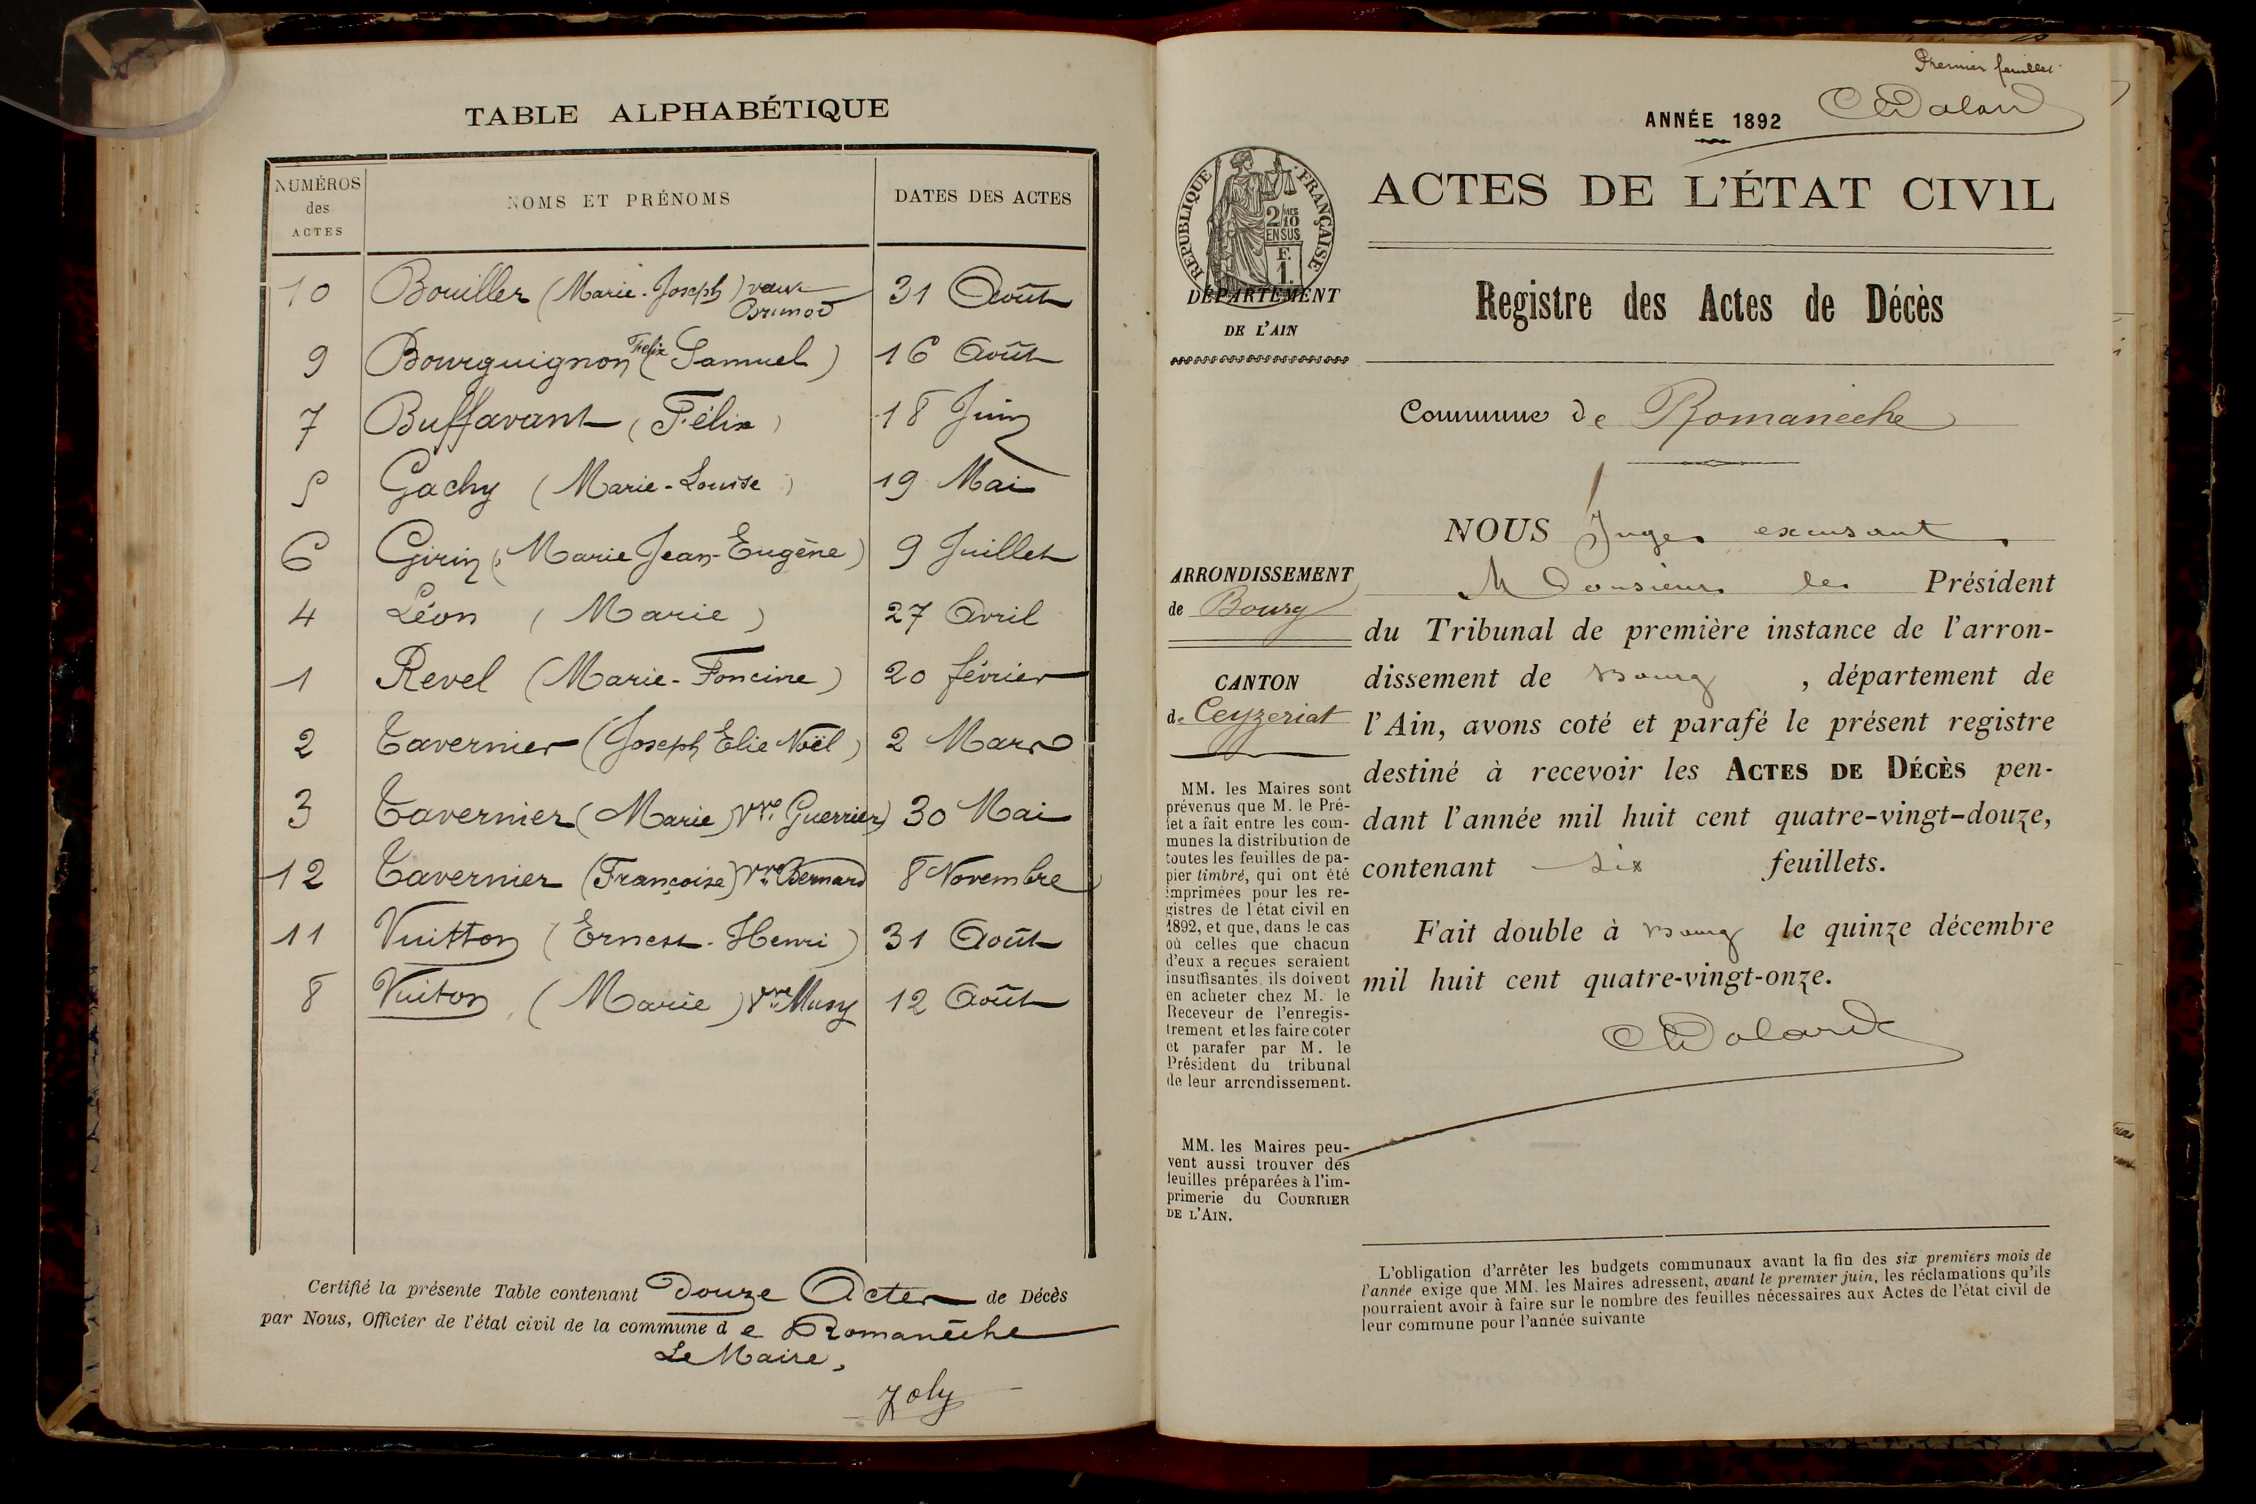 TABLE ALPHABÉTIQUE
NUMÉROS des ACTES
NOMS ET PRÉNOMS
DATES DES ACTES
10 Bouiller (Marie-Joseph) veuve Brunod 31 Août
9 Bourguignon (Felix Samuel) 16 Août
7 Buffavant (Félix) 18 Juin
5 Gachy (Marie-Louise) 19 Mai
6 Girin (Marie Jean-Eugène) 9 Juillet
4 Léon (Marie) 27 Avril
1 Revel (Marie-Foncine) 20 février
2 Tavernier (Joseph Elie Noël) 2 Mars
3 Tavernier (Marie) Vve Guerrier 30 Mai
12 Tavernier (Françoise) Vve Bernard 8 Novembre
11 Vuitton (Ernest-Henri) 31 Août
8 Vuiton (Marie) Vve Musy 12 Août
Certifié la présente Table contenant Douze Actes de Décès
par Nous, Officier de l'état civil de la commune de Romanèche
Le Maire,
Joly
Premier feuillet
ANNÉE 1892
ACTES DE L'ÉTAT CIVIL
RÉPUBLIQUE FRANÇAISE
2/10
EN SUS
F.
1.
DÉPARTEMENT
DE L'AIN
Registre des Actes de Décès
Commune de Romanèche
ARRONDISSEMENT
de Bourg
CANTON
de Ceyzeriat
MM. les Maires sont
prévenus que M. le Pré-
fet a fait entre les com-
munes la distribution de
toutes les feuilles de pa-
pier timbré, qui ont été
imprimées pour les re-
gistres de l'état civil en
1892, et que, dans le cas
où celles que chacun
d'eux a reçues seraient
insuffisantes, ils doivent
en acheter chez M. le
Receveur de l'enregis-
trement et les faire coter
et parafer par M. le
Président du tribunal
de leur arrondissement.
MM. les Maires peu-
vent aussi trouver des
feuilles préparées à l'im-
primerie du COURRIER
DE L'AIN.
NOUS Juge excusant
Monsieur le Président
du Tribunal de première instance de l'arron-
dissement de Bourg, département de
l'Ain, avons coté et parafé le présent registre
destiné à recevoir les ACTES DE DÉCÈS pen-
dant l'année mil huit cent quatre-vingt-douze,
contenant six feuillets.
Fait double à Bourg le quinze décembre
mil huit cent quatre-vingt-onze.
L'obligation d'arrêter les budgets communaux avant la fin des six premiers mois de
l'année exige que MM. les Maires adressent, avant le premier juin, les réclamations qu'ils
pourraient avoir à faire sur le nombre des feuilles nécessaires aux Actes de l'état civil de
leur commune pour l'année suivante